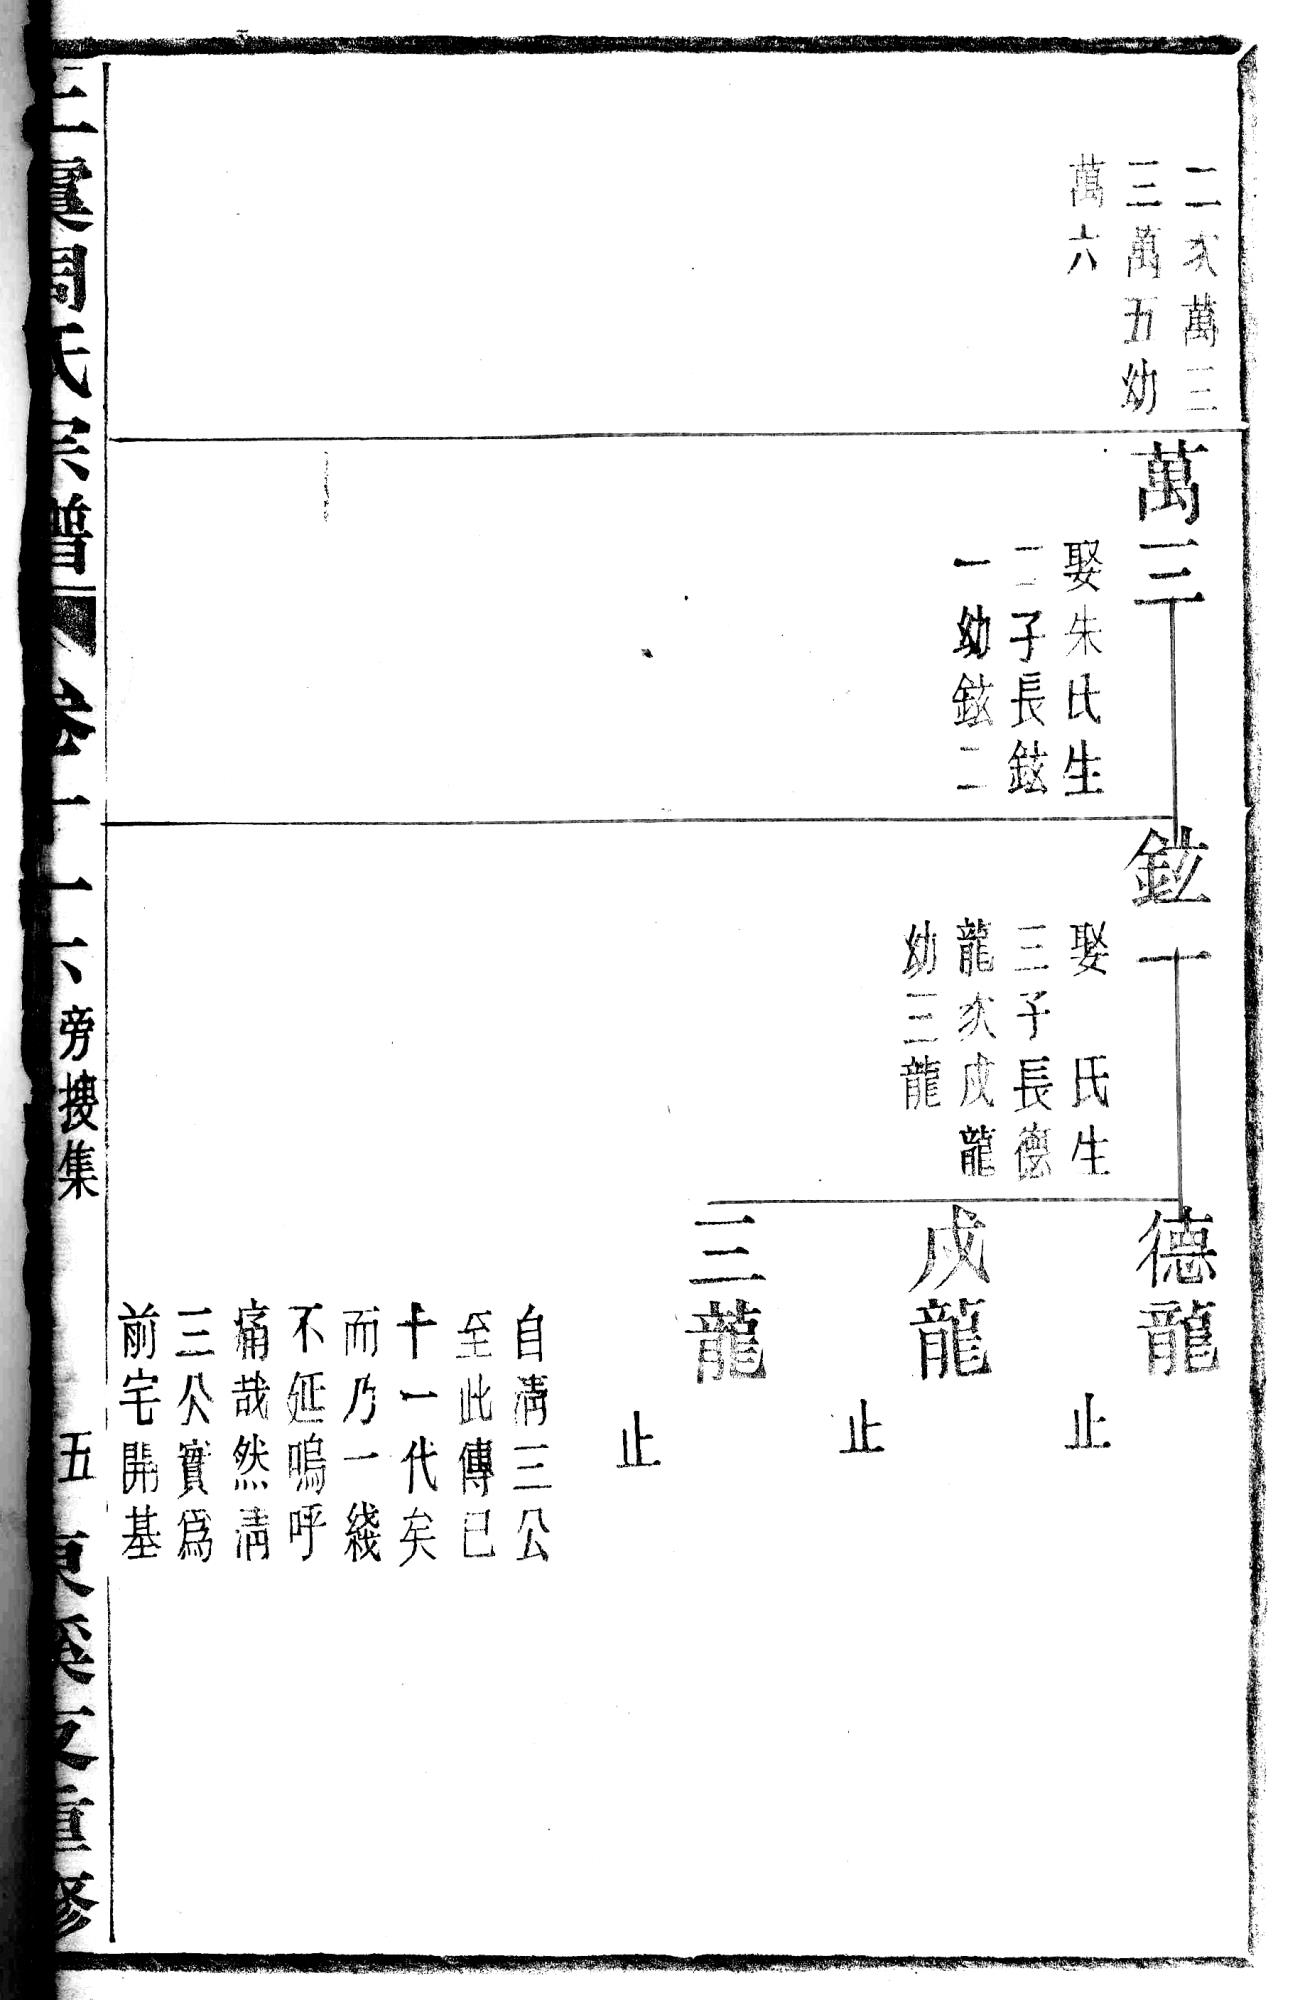 二次萬三
三萬五幼
萬六
萬三
娶朱氏生
二子長鉉
一幼鉉二
鉉一
娶　氏生
三子長德
龍次成龍
幼三龍
德龍
止
成龍
止
三龍
止
自淸三公
至此傳已
十一代矣
而乃一綫
不延嗚呼
痛哉然淸
三公實爲
前宅開基
周氏宗譜
卷十六
旁搜集
五
重修